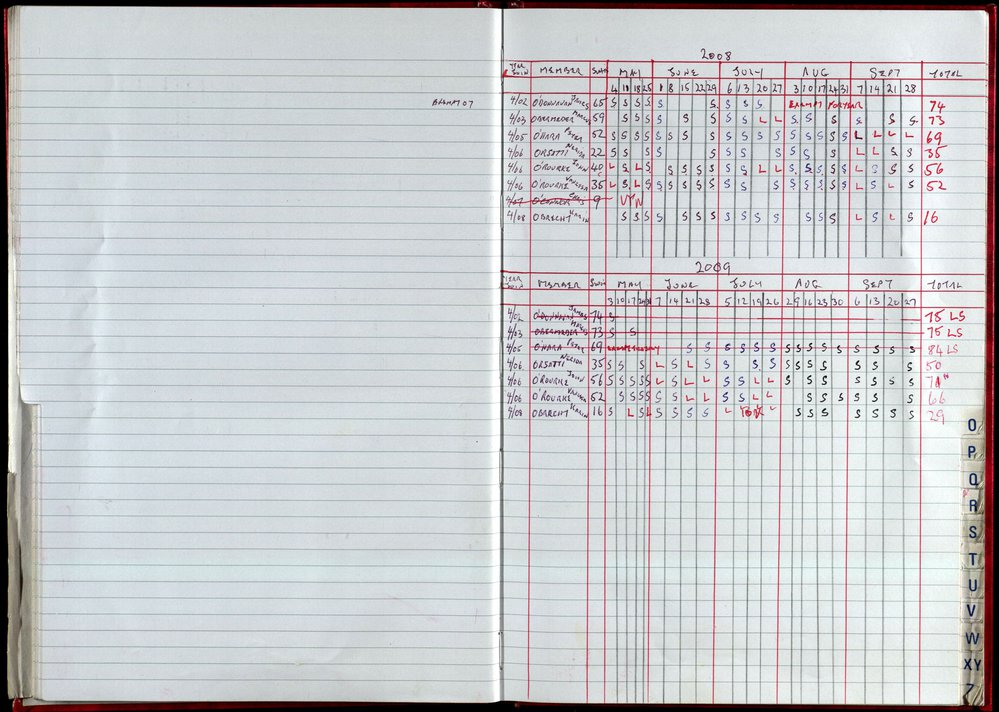 2008
YEAR JOIN MEMBER SWIM MAY JUNE JULY AUG SEPT TOTAL
4 11 18 25 1 8 15 22 29 6 13 20 27 3 10 17 24 31 7 14 21 28
EXEMPT 07 4/02 O'DONOVAN JAMES 65 S S S S S S S S S EXEMPT 74
4/03 OBERMEDER 59 S S S S S S S S L L S S S S S S 73
4/05 O'HARA PETER 52 S S S S S S S S S S S S S S S S S S L L L L 69
4/06 ORSATTI NERIDA 22 S S S S S S S S S S S L L S S 35
4/06 O'ROURKE JOHN 40 L S L S S S S S S S S L L S S S S S L S S S 56
4/06 O'ROURKE VANESSA 35 L S L S S S S S S S S S S S S S S L S L S 52
4/07 O'CONNER 9
4/08 OBRECHT KARIN S S S S S S S S S S S S S S S L S L S 16
2009
YEAR JOIN MEMBER SWIM MAY JUNE JULY AUG SEPT TOTAL
3 10 17 24 31 7 14 21 28 5 12 19 26 2 9 16 23 30 6 13 20 27
4/02 O'DONOVAN JAMES 74 S 75 LS
4/03 OBERMEDER 73 S S 75 LS
4/05 O'HARA PETER 69 S S S S S S S S S S S S S S S 84 LS
4/06 ORSATTI NERIDA 35 S S S L S L S S S S S S S S S S S 50
4/06 O'ROURKE JOHN 56 S S S S S L S L L S S L L S S S S S S S 71*
4/06 O'ROURKE VANESSA 52 S S S S S S L L S S L L S S S S S S S 66
4/08 OBRECHT KARIN 16 S L S L S S S S L L S S S S S S S 29
O
P
Q
R
S
T
U
V
W
XY
Z